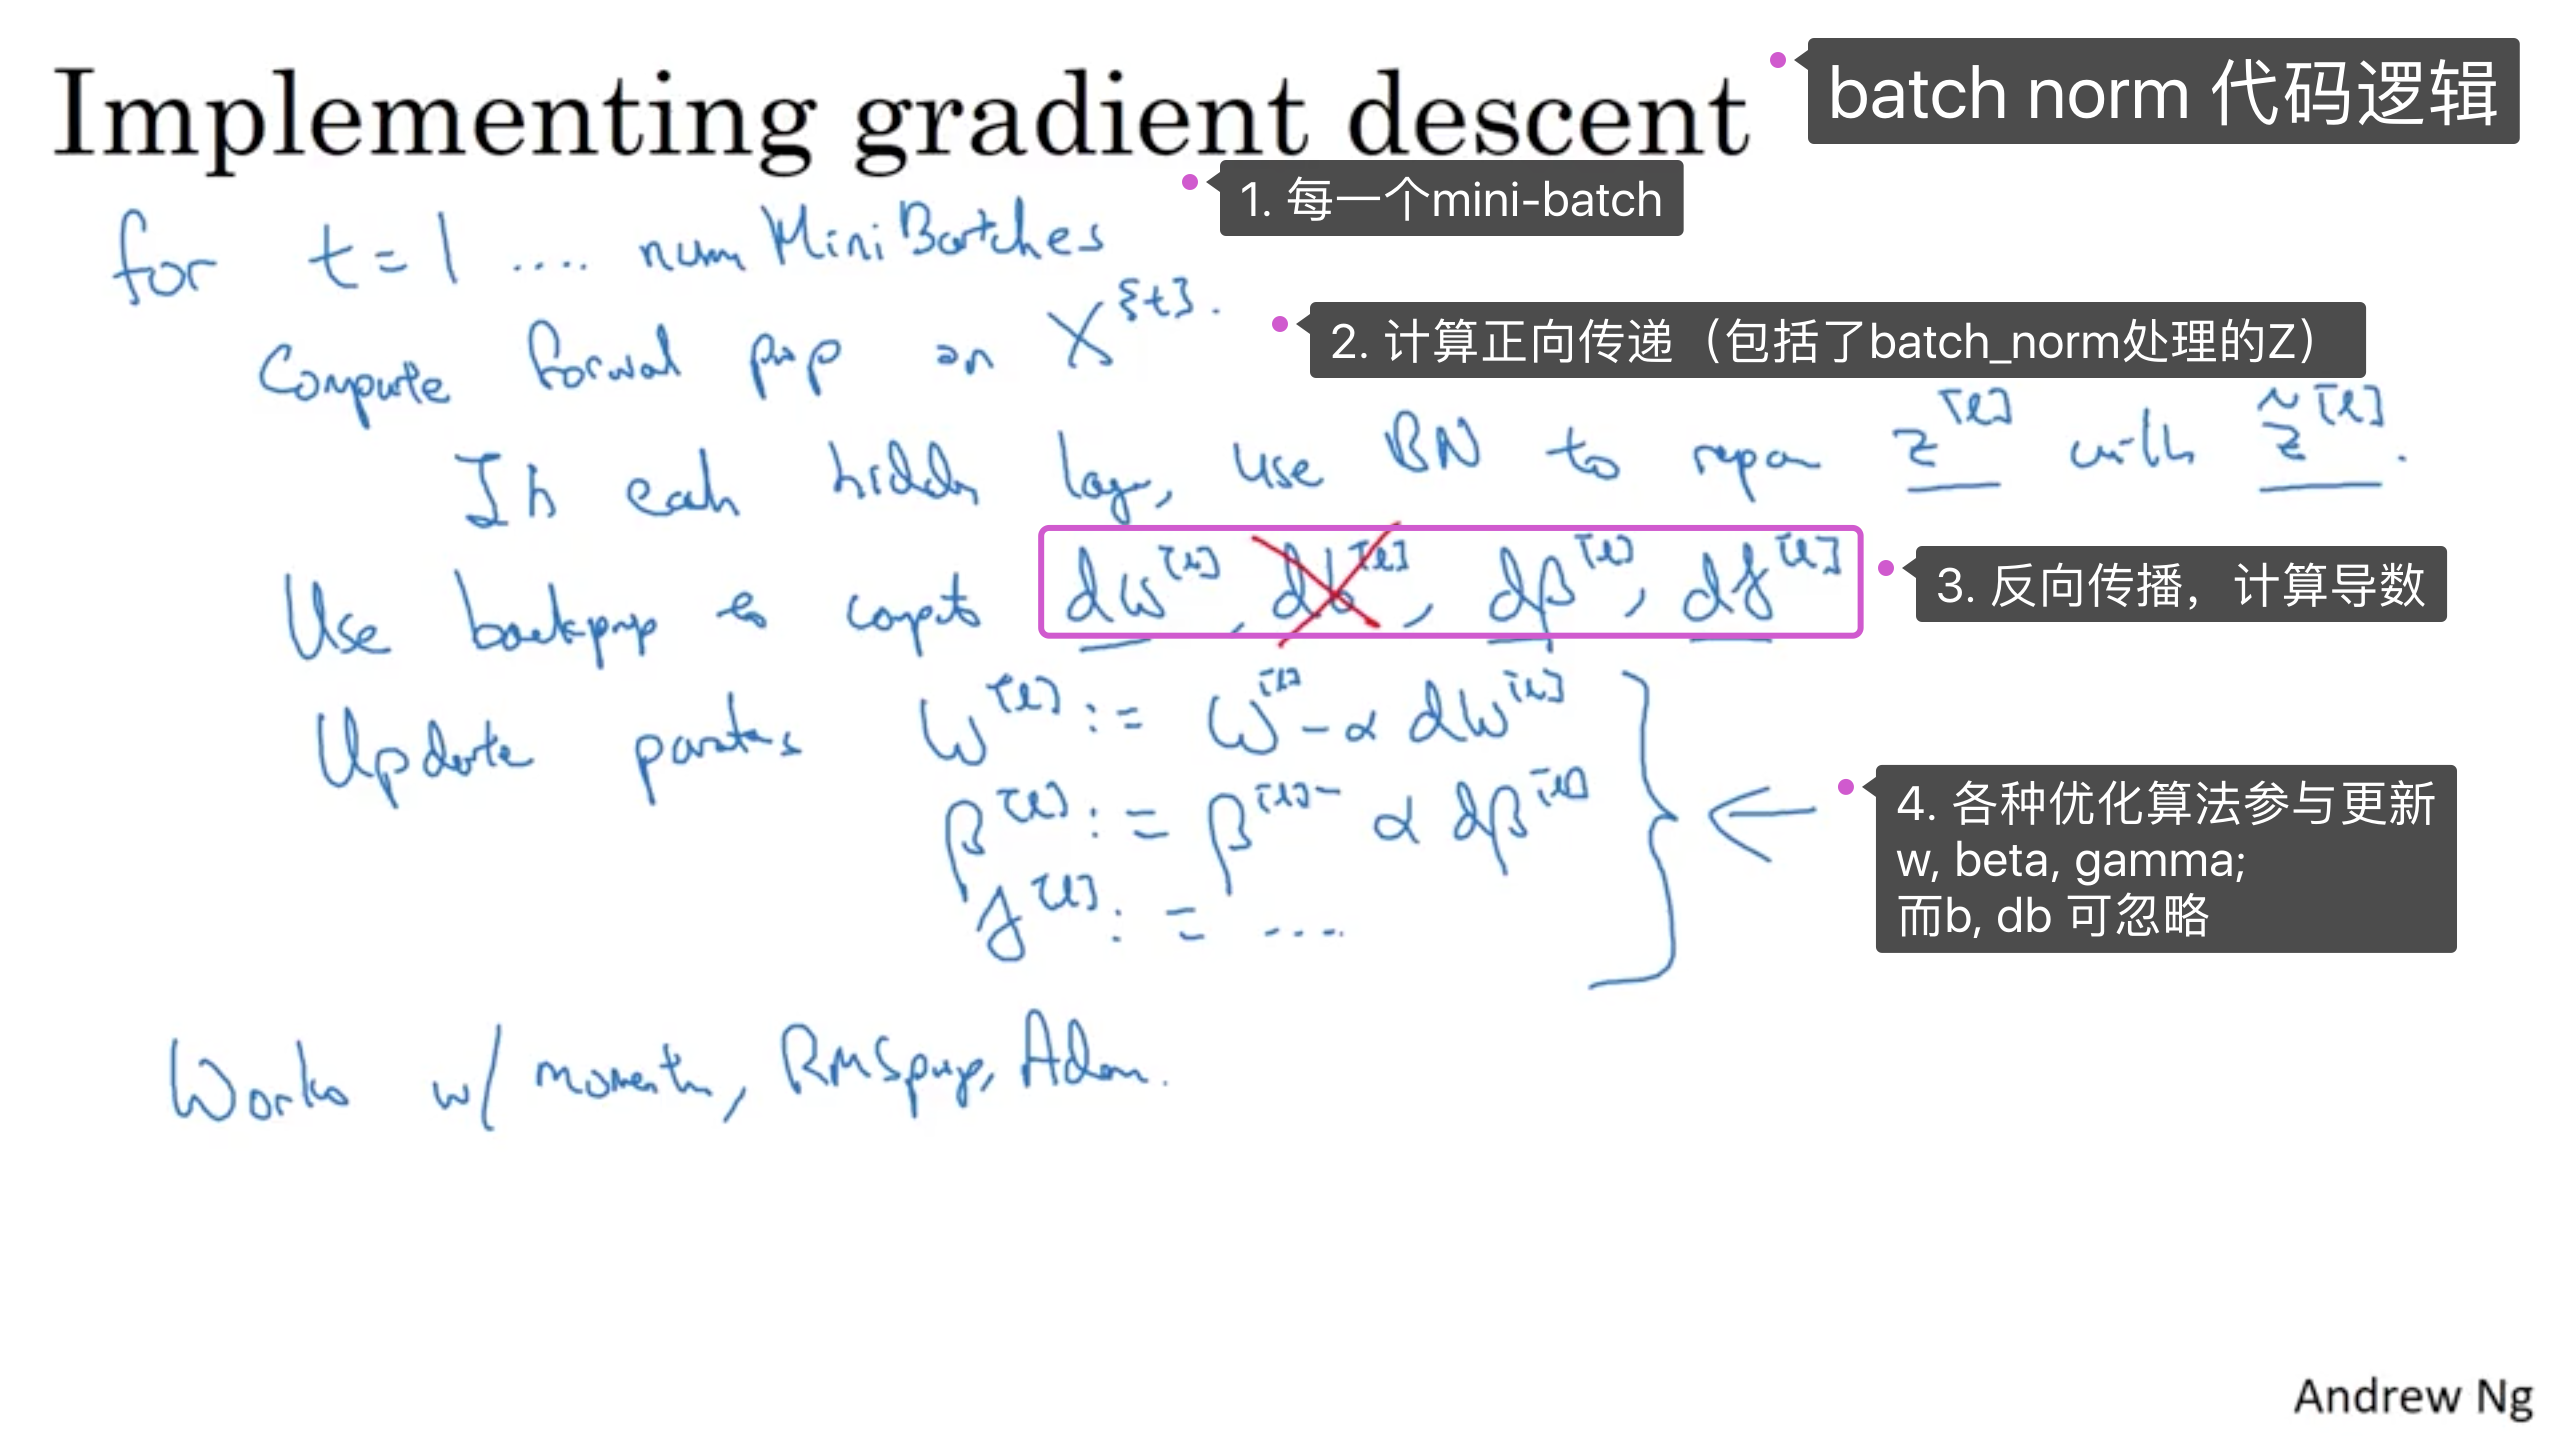 Implementing gradient descent
batch norm 代码逻辑
1. 每一个mini-batch
for t = 1 .... num Mini Batches
Compute forward prop on X^{t}.
2. 计算正向传递（包括了batch_norm处理的Z）
In each hidden layer, use BN to replace z^[l] with z̃^[l].
Use backprop to compute dw^[l], db^[l], dβ^[l], dγ^[l]
3. 反向传播，计算导数
Update parameters W^[l] := W^[l] - α dW^[l]
β^[l] := β^[l] - α dβ^[l]
γ^[l] := ....
4. 各种优化算法参与更新
w, beta, gamma;
而b, db 可忽略
Works w/ momentum, RMSprop, Adam.
Andrew Ng